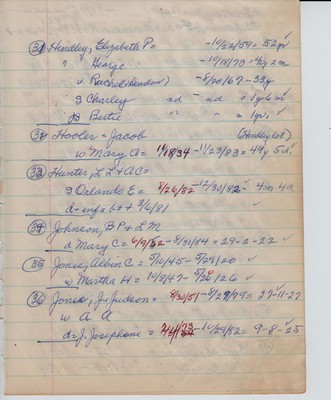 (31) Hendley, Elizabeth P = -10/22/59 = 52y
" George -10/18/73 - 4y 2m
w Rachel (Hendon) - 8/20/67 - 33y
J Charley nd - nd = 1y 4m
J B " " = 1y
(32) Hooler - Jacob (Hendley Lot)
w Mary A = 11/18/34 - 11/23/83 = 49y 5d
(33) Hunter, L L + A C =
J Orlando E = 8/26/82 - 12/30/82 - 4m 4d
d - inf = b + + 3/6/81
(34) Johnson, B P + L M
d Mary C = 6/9/52 - 8/31/84 = 29-2-22
(35) Jones, Albin C = 9/10/45 - 9/29/20
w Martha H = 10/9/47 - 5/20/26
(36) Jones, J. Judson = 8/30/51 - 8/27/79 = 27-11-27
w A A
d - J. Josephine = - 10/29/82 = 9-8-25